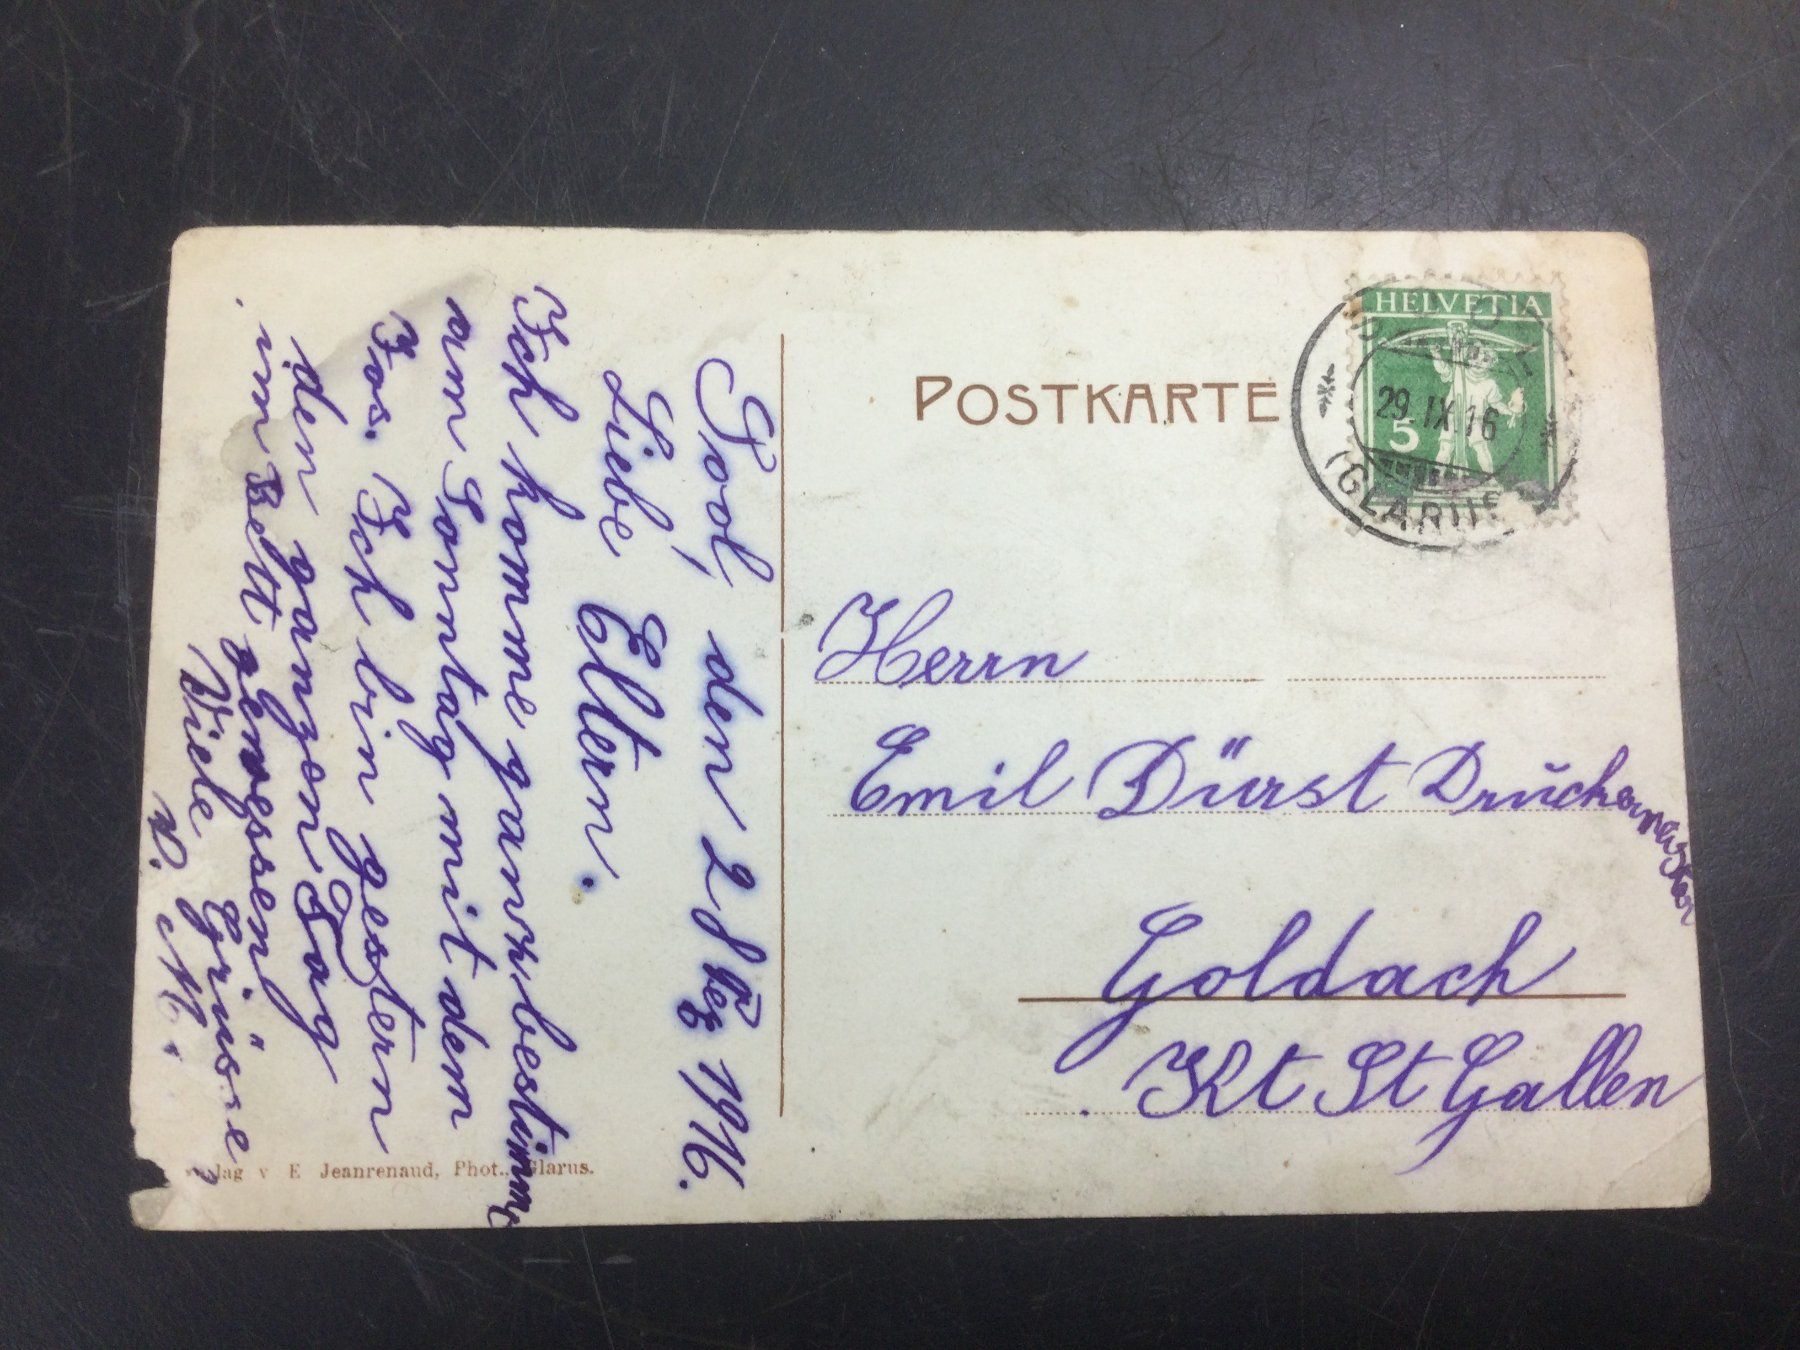 POSTKARTE
HELVETIA
5
29.IX.16
(GLARUS)
Herrn
Emil Dürst Druckermeister
Goldach
Kt St Gallen
Sool, den 28 1916.
Liebe Eltern.
Ich komme ganz bestimmt
am Sonntag mit dem
Jos. Ich bin gestern
den ganzen Tag
im Bett gewessen
Viele Grüsse
v. M.
E Jeanrenaud, Phot., Glarus.